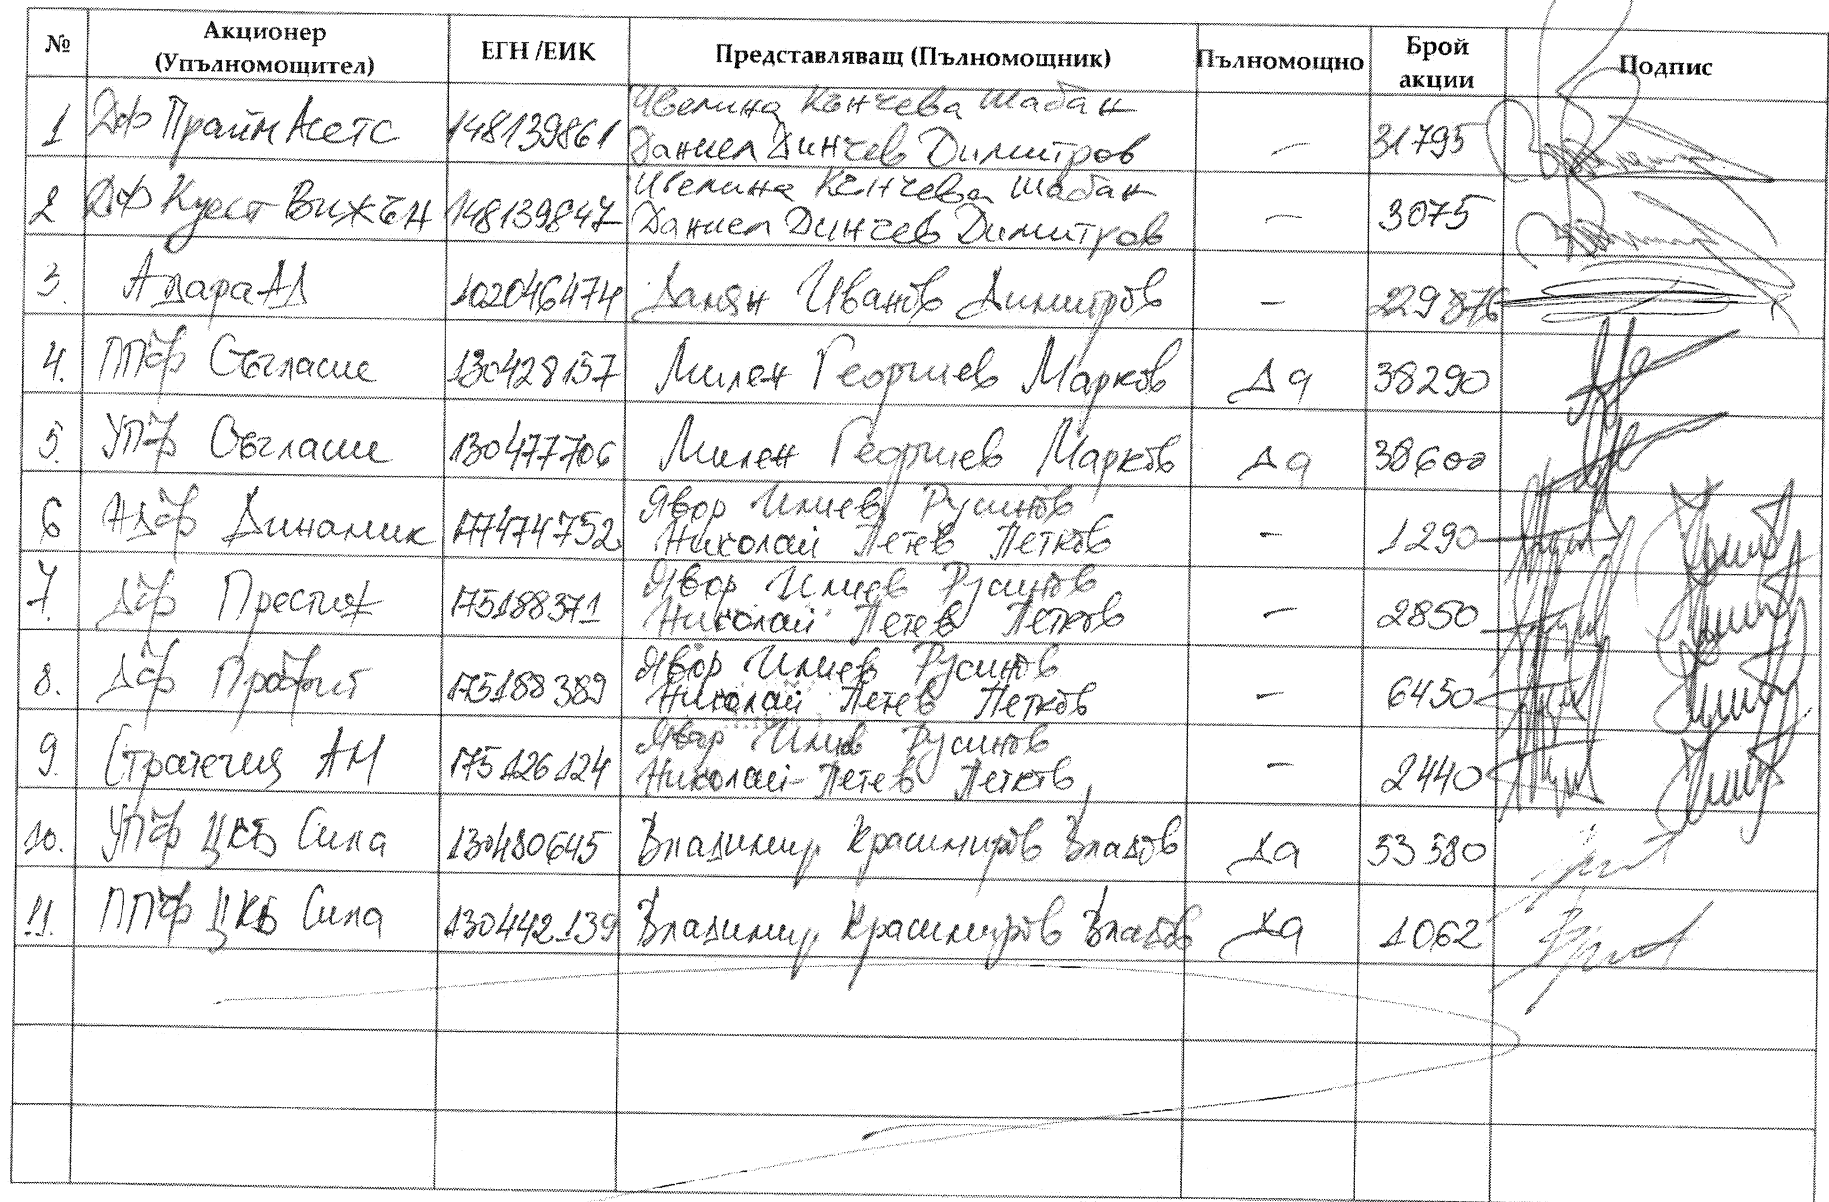 № Акционер (Упълномощител) ЕГН /ЕИК Представляващ (Пълномощник) Пълномощно Брой акции Подпис
1 ДФ Прайм Асетс 148139861 Ивелина Кънчева Шабан – 31795
Даниел Динчев Димитров
2 ДФ Куест Вижън 148139847 Ивелина Кънчева Шабан – 3075
Даниел Динчев Димитров
3. Адара АД 102046474 Дамян Иванов Димитров – 229876
4. ППФ Съгласие 130428157 Милен Георгиев Марков Да 38290
5. УПФ Съгласие 130477706 Милен Георгиев Марков Да 38600
6 НДФ Динамик 177474752 Явор Илиев Русинов – 1290
Николай Петев Петков
7. ДФ Престиж 175188371 Явор Илиев Русинов – 2850
Николай Петев Петков
8. ДФ Профит 175188389 Явор Илиев Русинов – 6450
Николай Петев Петков
9. Стратегия АМ 175126124 Явор Илиев Русинов – 2440
Николай Петев Петков
10. УПФ ЦКБ Сила 130480645 Владимир Красимиров Владов Да 53580
11. ППФ ЦКБ Сила 130442139 Владимир Красимиров Владов Да 1062